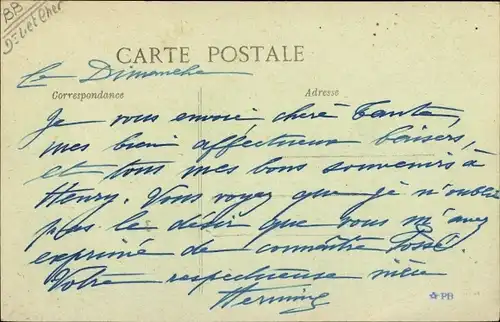 BB
Dt Loir et Cher
CARTE POSTALE
Le Dimanche
Correspondance
Adresse
Je vous envoie, chère Tante,
mes bien affectueux baisers,
et tous mes bons souvenirs à
Henry. Vous voyez que je n'oublie
pas le désir que vous m'avez
exprimé de connaître Fossé.
Votre respectueuse nièce
PB